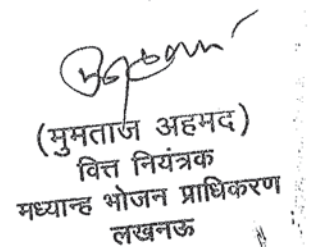 (मुमताज अहमद)
वित्त नियंत्रक
मध्यान्ह भोजन प्राधिकरण
लखनऊ